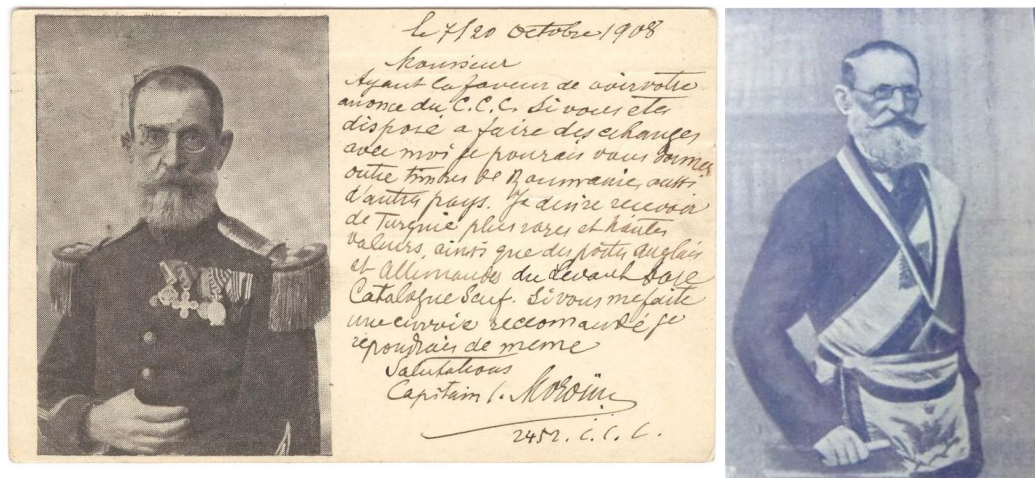 le 7/20 Octobre 1908
Monsieur
Ayant la faveur de voir votre
anonce du C.C.C. Si vous etes
disposé a faire des echanges
avec moi je pourais vous donner
outre timbres de Roumanie, aussi
d'autres pays. Je desire recevoir
de Turquie plus rares et hautes
valeurs, ainsi que des postes anglais
et Allemandes du Levant base
Catalogue Senf. Si vous me faite
une envoie reccomandé je
répondrais de meme
Salutations
Capitain I. Moroiu
2452. C.C.C.